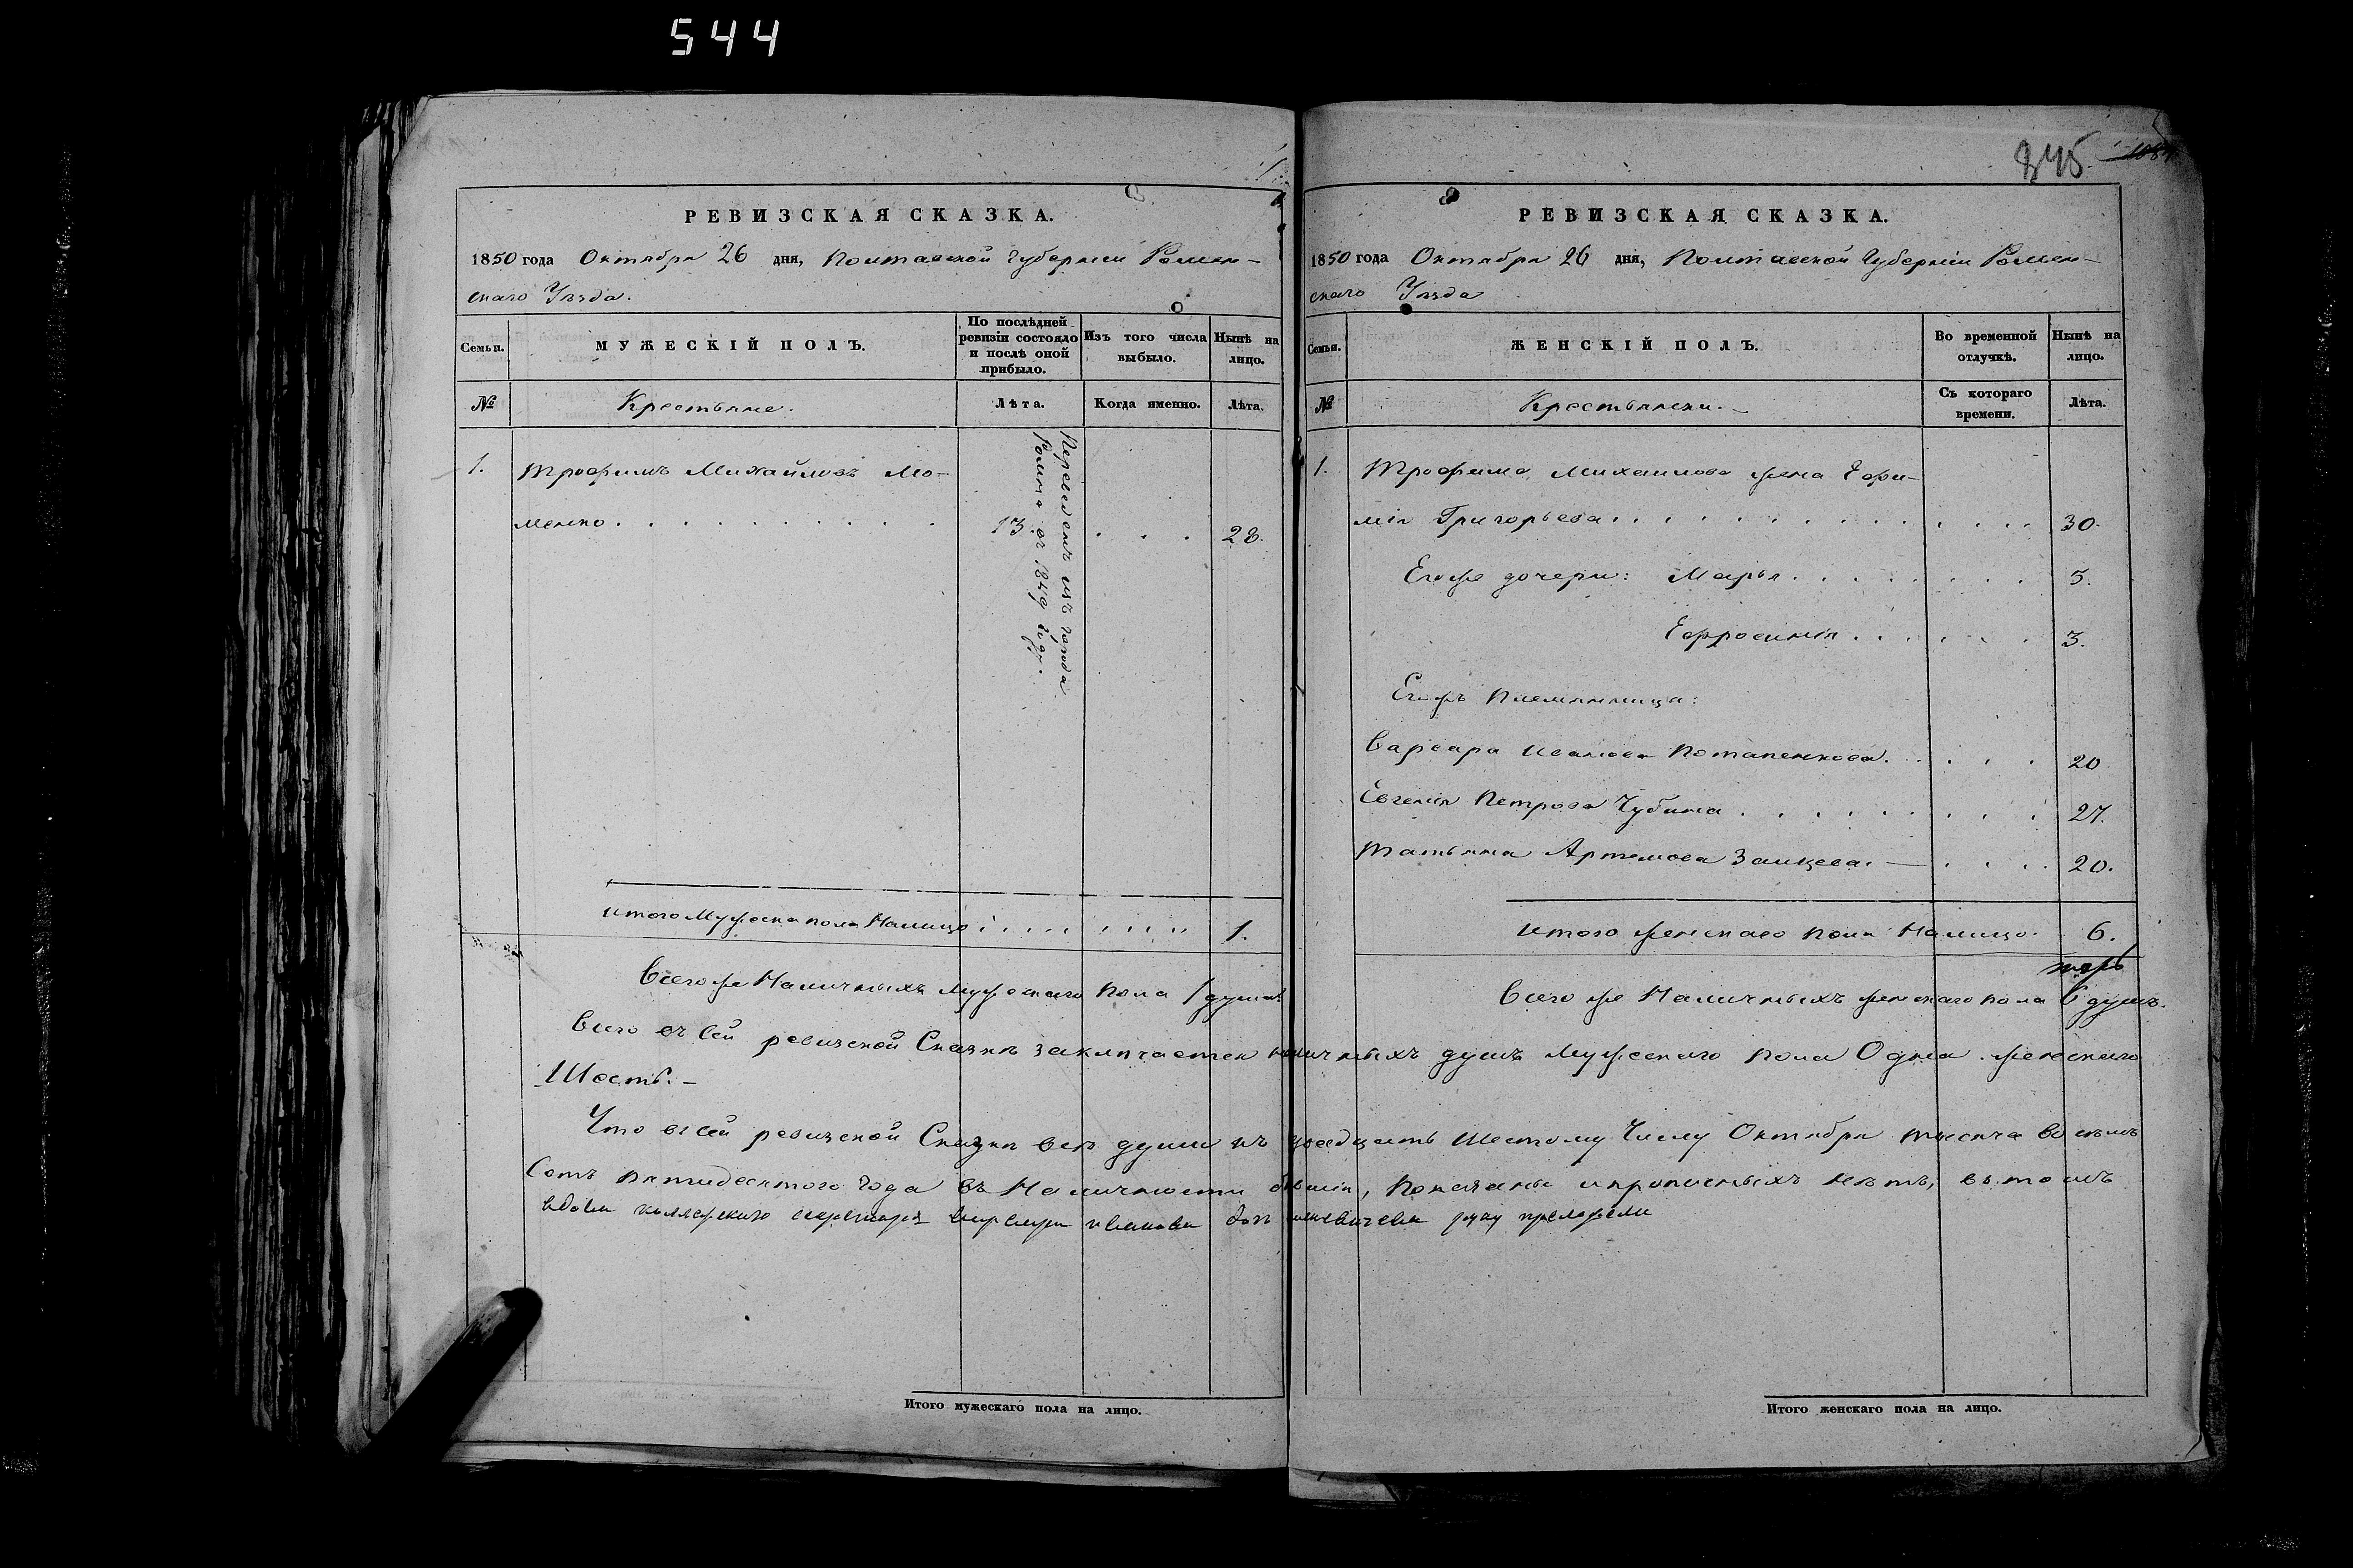 544
РЕВИЗСКАЯ СКАЗКА.
1850 года Октября 26 дня, Полтавской Губерніи Ромен-
скаго Уѣзда.
Семьи.
МУЖЕСКІЙ ПОЛЪ.
По послѣдней ревизіи состояло и послѣ оной прибыло.
Изъ того числа выбыло.
Нынѣ на лицо.
№
Крестьяне.
Лѣта.
Когда именно.
Лѣта.
1. Трофимъ Михайловъ Мо-
менко . . . . . . . . . . 13. . . . 28.
Переведенъ изъ города
Ромна въ 1849 году.
Итого Мужеска пола Налицо . . . . . . . . 1.
Всего же Наличныхъ мужескаго пола 1 душа.
345
РЕВИЗСКАЯ СКАЗКА.
1850 года Октября 26 дня, Полтавской Губерніи Ромен-
скаго Уѣзда
Семьи.
ЖЕНСКІЙ ПОЛЪ.
Во временной отлучкѣ.
Нынѣ на лицо.
№
Крестьянски.
Съ котораго времени.
Лѣта.
1. Трофима Михаилова жена Ефи-
мія Григорьева . . . . . . . . . . . . 30.
Егоже дочери: Марья . . . . . . . . 5.
Ефросинія . . . . . . 3.
Егожъ племянница:
Варвара Иванова Потапенкова . . . . . 20
Евгенія Петрова Чубина . . . . . . . . 27.
Татьяна Артемова Заицева. — . . . . 20.
Итого женскаго пола Налицо. 6.
Всего же Наличныхъ женскаго пола 6 душъ.
Всего въ сей ревизской Сказкѣ заключается наличныхъ душъ Мужескаго пола Одна. женскаго
Шесть. —
Что въ сей ревизской Сказкѣ всѣ души къ двадцать Шестому Числу Октября тысяча восемъ
Сотъ пятидесятого года въ Наличности бывшія, показаны и прописныхъ нѣтъ, въ томъ
вдова коллежскаго секретаря Варвара иванова руку преложела
Итого мужескаго пола на лицо.
Итого женскаго пола на лицо.